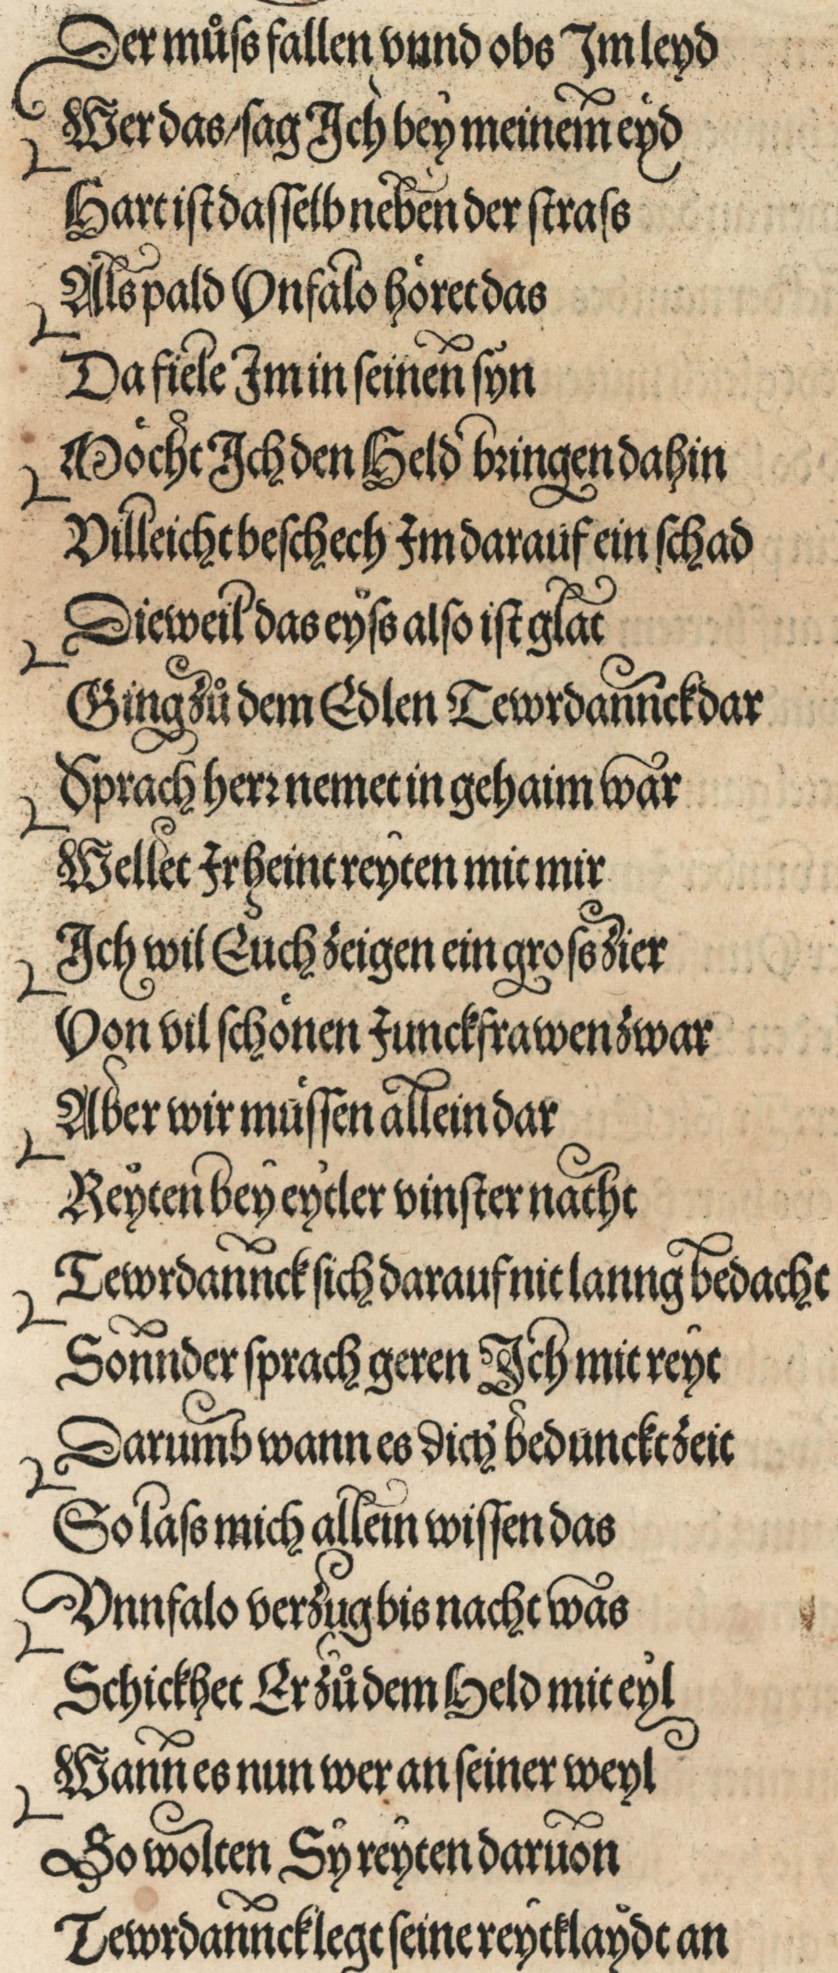 Der můſs fallen vnnd obs Im leyd
Wer das/ſag Ich bey meinem eyd
Hart iſt daſſelb neben der ſtraſs
Als pald Vnfalo höret das
Da fiele Im in ſeinen ſyn
Möcht Ich den Held bringen dahin
Villeicht beſchech Im darauf ein ſchad
Dieweil das eyſs alſo iſt glat
Ging zů dem Edlen Tewrdannck dar
Sprach herr nemet in gehaim war
Wellet Ir heint reyten mit mir
Ich wil Euch zeigen ein groſs zier
Von vil ſchönen Junckfrawen zwar
Aber wir müſſen allein dar
Reyten bey eytler vinſter nacht
Tewrdannck ſich darauf nit lanng bedacht
Sonnder ſprach geren Ich mit reyt
Darumb wann es dich bedunckt zeit
So laſs mich allein wiſſen das
Vnnfalo verzug bis nacht was
Schickhet Er zů dem Held mit eyl
Wann es nun wer an ſeiner weyl
So wolten Sy reyten daruon
Tewrdannck legt ſeine reytklaydt an